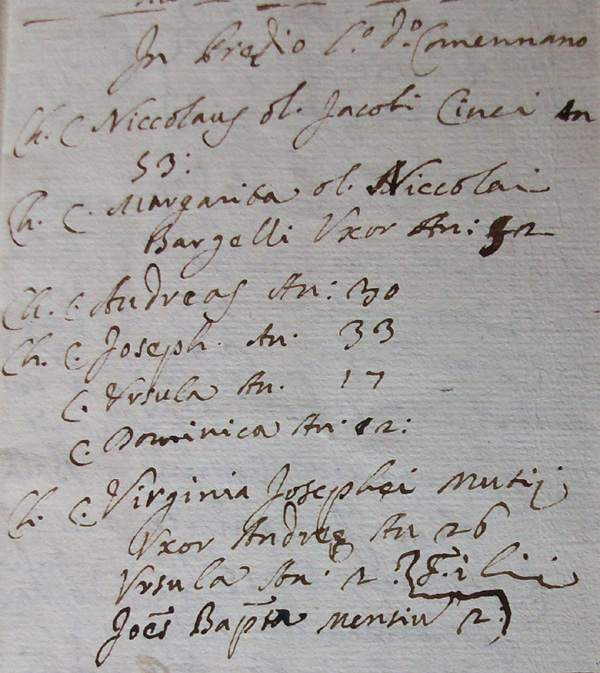 In predio l.o d.o Comennano
Ch. C. Niccolaus ol. Jacobi Cinci An
53:
Ch. C. Margarita ol. Niccolai
Bargelli Vxor An: 52
Ch. C. Andreas An: 30
Ch. C. Joseph. An. 33
C. Vrsula An. 17
C. Dominica An: 12:
Ch. C. Virginia Josephi Mutij
Vxor Andreę An 26
Vrsula An. 2. Filii
Joẽs Bap̃ta mensiũ 2: